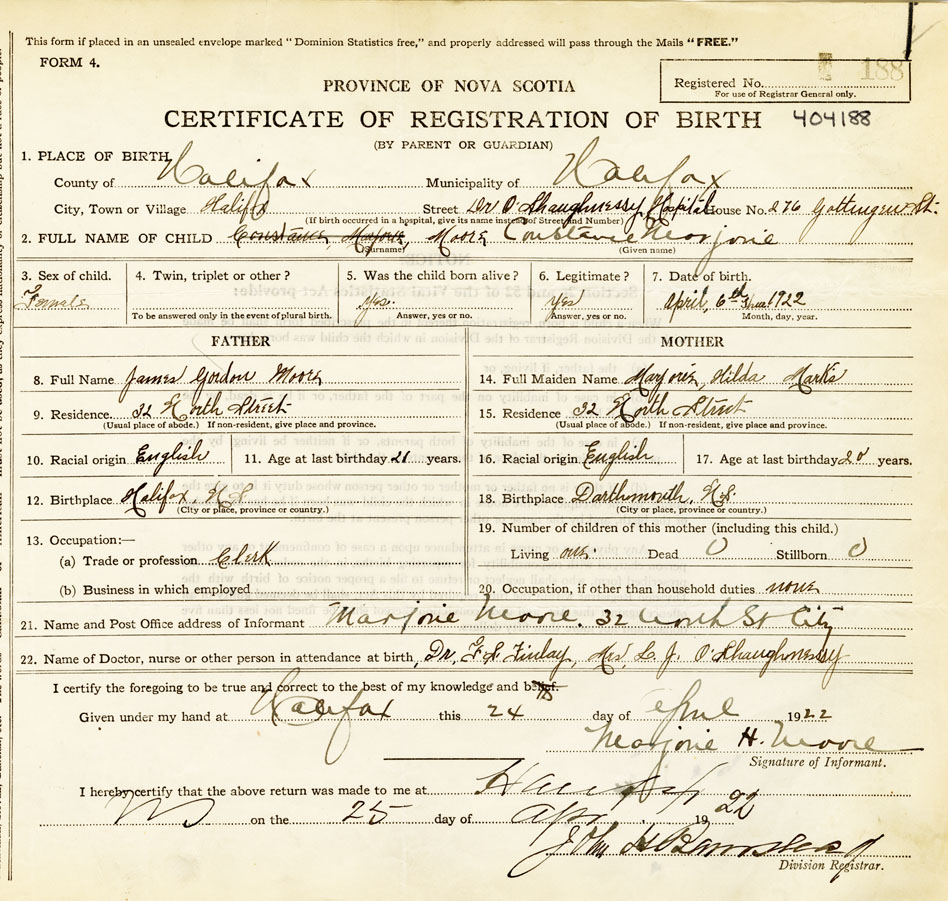 This form if placed in an unsealed envelope marked "Dominion Statistics free," and properly addressed will pass through the Mails "FREE."
FORM 4.
Registered No. 188
For use of Registrar General only.
PROVINCE OF NOVA SCOTIA
CERTIFICATE OF REGISTRATION OF BIRTH 404188
(BY PARENT OR GUARDIAN)
1. PLACE OF BIRTH
County of Halifax Municipality of Halifax
City, Town or Village Halifax Street Dr O'Shaughnessy Hospital House No. 276 Gottingen St.
(If birth occurred in a hospital, give its name instead of Street and Number)
2. FULL NAME OF CHILD Constance Marjorie, Moore Constance Marjorie
(Surname) (Given name)
3. Sex of child. 4. Twin, triplet or other? 5. Was the child born alive? 6. Legitimate? 7. Date of birth.
Female yes. Yes April, 6th 1922
To be answered only in the event of plural birth. Answer, yes or no. Answer, yes or no. Month, day, year.
FATHER MOTHER
8. Full Name James Gordon Moore 14. Full Maiden Name Marjorie Hilda Marks
9. Residence. 32 North Street 15. Residence 32 North Street
(Usual place of abode.) If non-resident, give place and province. (Usual place of abode.) If non-resident, give place and province.
10. Racial origin English 11. Age at last birthday 21 years. 16. Racial origin English 17. Age at last birthday 20 years.
12. Birthplace Halifax, N.S. 18. Birthplace Darthmouth, N.S.
(City or place, province or country.) (City or place, province or country.)
13. Occupation:— 19. Number of children of this mother (including this child.)
(a) Trade or profession Clerk Living one. Dead 0 Stillborn 0
(b) Business in which employed 20. Occupation, if other than household duties none
21. Name and Post Office address of Informant Marjorie Moore. 32 North St City
22. Name of Doctor, nurse or other person in attendance at birth, Dr. F. S. Finlay, Mrs L. J. O'Shaughnessy
I certify the foregoing to be true and correct to the best of my knowledge and belief.
Given under my hand at Halifax this 24th day of April 1922
Marjorie H. Moore
Signature of Informant.
I hereby certify that the above return was made to me at Halifax
NS on the 25 day of Apr. 1922
John H Barnstead
Division Registrar.